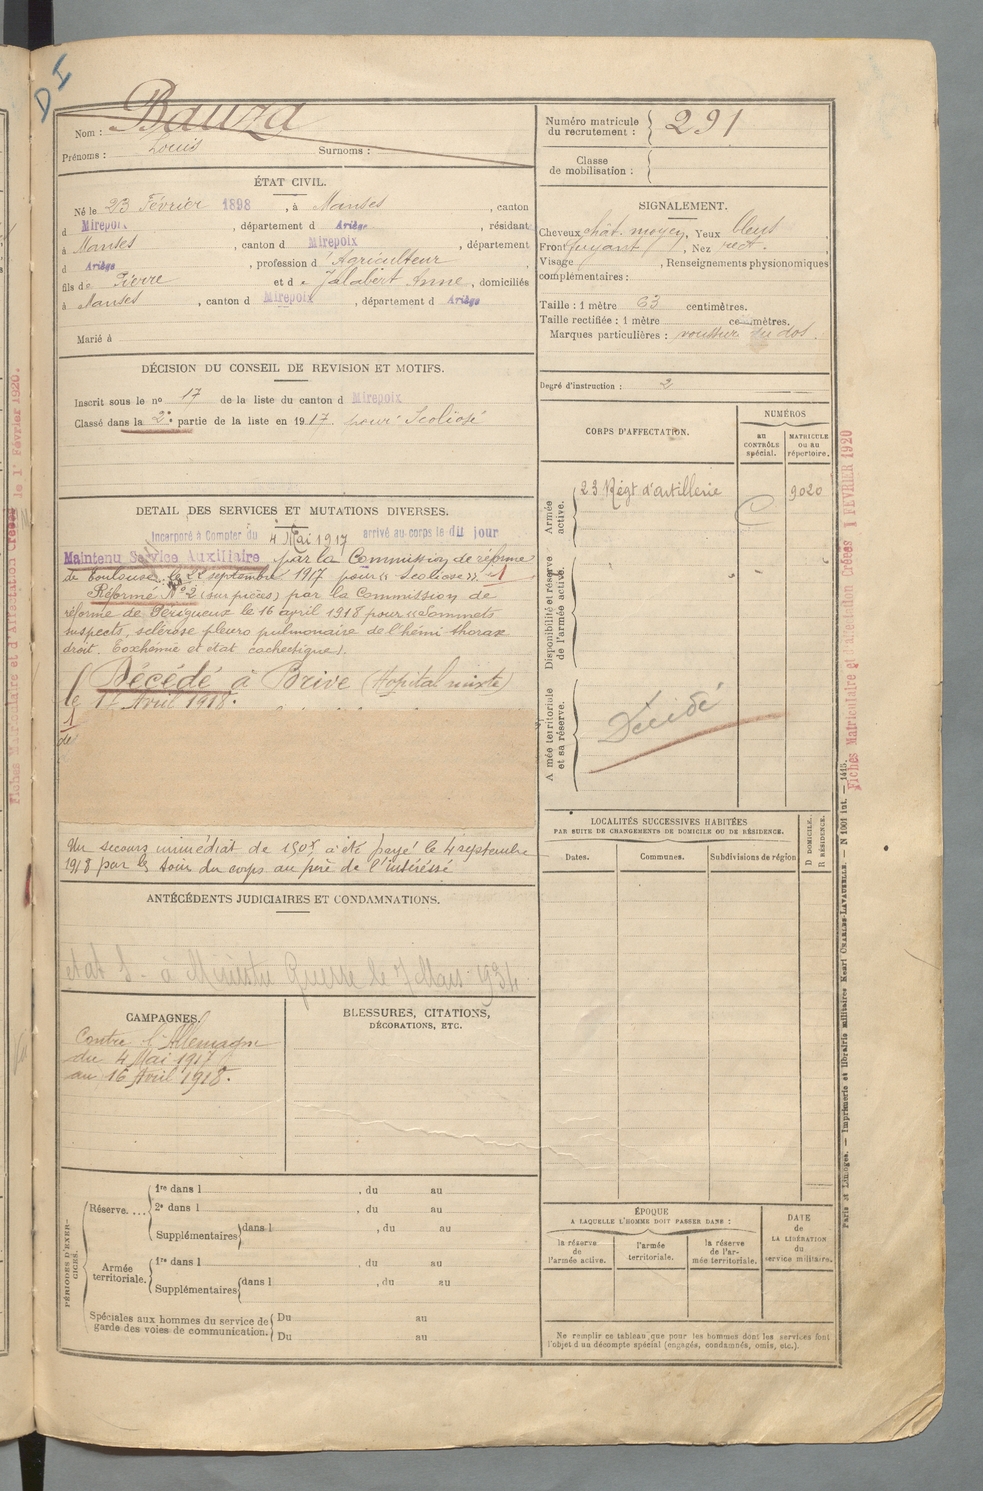 D I
Nom : Bauza
Prénoms : Louis Surnoms :
Numéro matricule du recrutement : 291
Classe de mobilisation :
ÉTAT CIVIL.
Né le 23 Février 1898, à Manses, canton
d Mirepoix, département d Ariège, résidant
à Manses, canton d Mirepoix, département
d Ariège, profession d'Agriculteur
fils de Pierre et de Jalabert Anne, domiciliés
à Manses, canton d Mirepoix, département d Ariège
Marié à
SIGNALEMENT.
Cheveux chât. moyen, Yeux bleus
Front fuyant, Nez rect.
Visage , Renseignements physionomiques
complémentaires :
Taille : 1 mètre 63 centimètres.
Taille rectifiée : 1 mètre centimètres.
Marques particulières : au dos.
Degré d'instruction : 2
DÉCISION DU CONSEIL DE REVISION ET MOTIFS.
Inscrit sous le no 17 de la liste du canton d Mirepoix
Classé dans la 2e partie de la liste en 1917 pour Scoliose
CORPS D'AFFECTATION.
NUMÉROS
au CONTRÔLE spécial.
MATRICULE ou au répertoire.
Armée active.
23 Régt d'artillerie
9020
Disponibilité et réserve de l'armée active.
Armée territoriale et sa réserve.
Décédé
DETAIL DES SERVICES ET MUTATIONS DIVERSES.
Incorporé à Compter du 4 Mai 1917 arrivé au corps le dit jour
Maintenu Service Auxiliaire par la Commission de réforme
de Toulouse le 22 septembre 1917 pour "Scoliose".
Réformé No 2 (sur pièces) par la Commission de
réforme de Périgueux le 16 avril 1918 pour "Sommets
suspects, sclérose pleuro pulmonaire de l'hémi thorax
droit. Toxhémie et état cachectique).
Décédé à Brive (Hopital mixte)
le 17 Avril 1918.
de
Un secours immédiat de 150f a été payé le 4 septembre
1918 par les soins du corps au père de l'intéréssé
ANTÉCÉDENTS JUDICIAIRES ET CONDAMNATIONS.
état S - à Ministre Guerre le 7 Mars 1934
LOCALITÉS SUCCESSIVES HABITÉES
PAR SUITE DE CHANGEMENTS DE DOMICILE OU DE RÉSIDENCE.
Dates.
Communes.
Subdivisions de région
D DOMICILE.
R RÉSIDENCE.
CAMPAGNES.
Contre l'Allemagne
du 4 Mai 1917
au 16 Avril 1918.
BLESSURES, CITATIONS,
DÉCORATIONS, ETC.
PÉRIODES D'EXERCICES.
Réserve....
1re dans l , du au
2e dans l , du au
Supplémentaires dans l , du au
Armée territoriale.
1re dans l , du au
Supplémentaires dans l , du au
Spéciales aux hommes du service de garde des voies de communication.
Du au
Du au
ÉPOQUE
A LAQUELLE L'HOMME DOIT PASSER DANS :
la réserve de l'armée active.
l'armée territoriale.
la réserve de l'armée territoriale.
DATE de LA LIBÉRATION du service militaire.
Ne remplir ce tableau que pour les hommes dont les services font
l'objet d'un décompte spécial (engagés, condamnés, omis, etc.).
Fiches Matriculaire et d'affectation Créées 1 FEVRIER 1920
Paris et Limoges. — Imprimerie et librairie militaires Henri CHARLES-LAVAUZELLE. — N 1001 int. — 1415.
Fiches Matriculaire et d'Affectation Créées le 1er Février 1920.